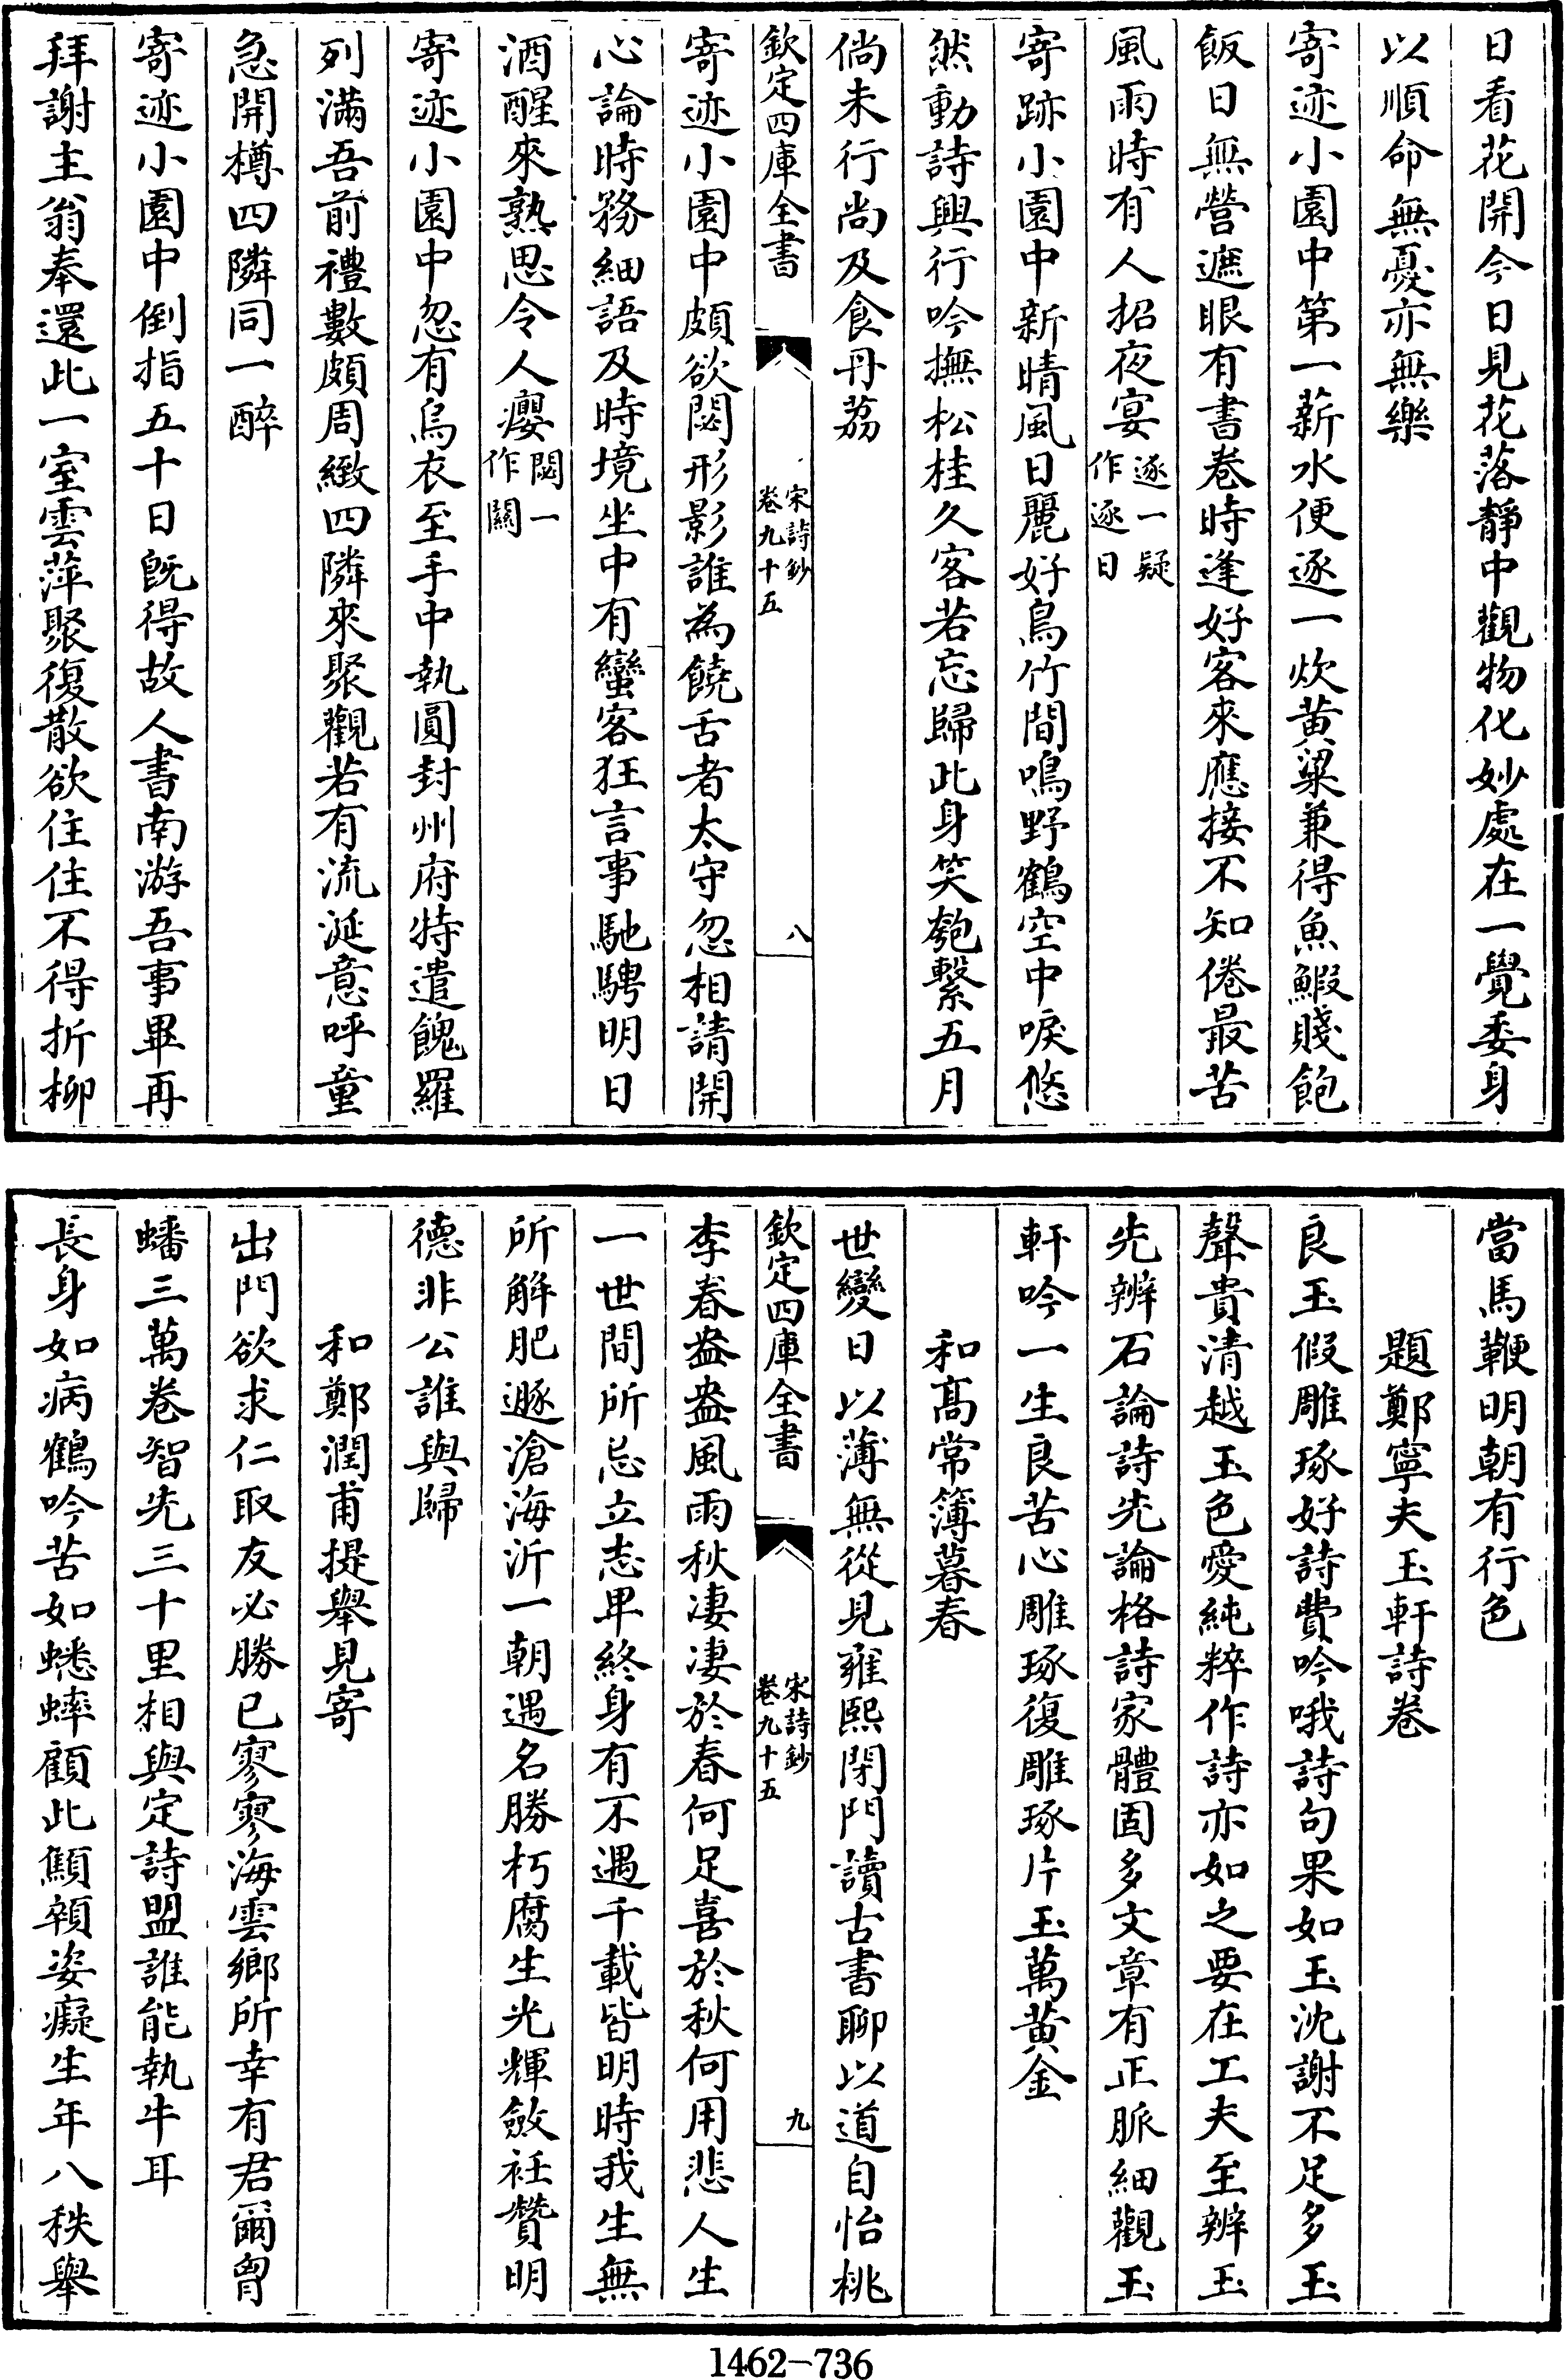 日看花開今日見花落靜中觀物化妙處在一覺委身
以順命無憂亦無樂
寄迹小園中第一薪水便逐一炊黄粱兼得魚鰕賤飽
飯日無營遮眼有書卷時逢好客來應接不知倦最苦
風雨時有人招夜宴逐一疑作逐日
寄跡小園中新晴風日麗好鳥竹間鳴野鶴空中唳悠
然動詩興行吟撫松桂久客若忘歸此身笑匏繫五月
倘未行尚及食丹荔
欽定四庫全書
宋詩鈔
卷九十五
八
寄迹小園中頗欲閟形影誰為饒舌者太守忽相請開
心論時務細語及時境坐中有蠻客狂言事馳騁明日
酒醒來熟思令人癭閟一作關
寄迹小園中忽有烏衣至手中執圓封州府特遣餽羅
列滿吾前禮數頗周緻四隣來聚觀若有流涎意呼童
急開樽四隣同一醉
寄迹小園中倒指五十日旣得故人書南游吾事畢再
拜謝主翁奉還此一室雲萍聚復散欲住住不得折柳
當馬鞭明朝有行色
題鄭寧夫玉軒詩卷
良玉假雕琢好詩費吟哦詩句果如玉沈謝不足多玉
聲貴清越玉色愛純粹作詩亦如之要在工夫至辨玉
先辨石論詩先論格詩家體固多文章有正脈細觀玉
軒吟一生良苦心雕琢復雕琢片玉萬黄金
和高常簿暮春
世變日以薄無從見雍熙閉門讀古書聊以道自怡桃
欽定四庫全書
宋詩鈔
卷九十五
九
李春盎盎風雨秋凄凄於春何足喜於秋何用悲人生
一世間所忌立志卑終身有不遇千載皆明時我生無
所解肥遯滄海沂一朝遇名勝朽腐生光輝斂衽贊明
德非公誰與歸
和鄭潤甫提舉見寄
出門欲求仁取友必勝已寥寥海雲鄉所幸有君爾胷
蟠三萬卷智先三十里相與定詩盟誰能執牛耳
長身如病鶴吟苦如蟋蟀顧此顦顇姿癡生年八秩舉
1462-736